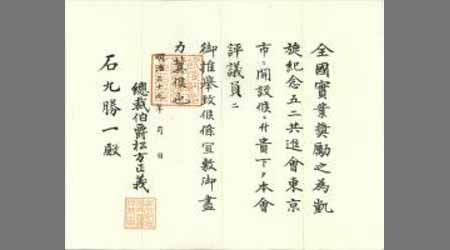 全國實業奨勵之為凱
旋紀念五二共進會東京
市ニ開設候ニ付貴下ヲ本會
評議員ニ
御推擧致候條宜敷御盡
力冀候也
明治三十九年 月 日
總裁伯爵松方正義
石九勝一殿